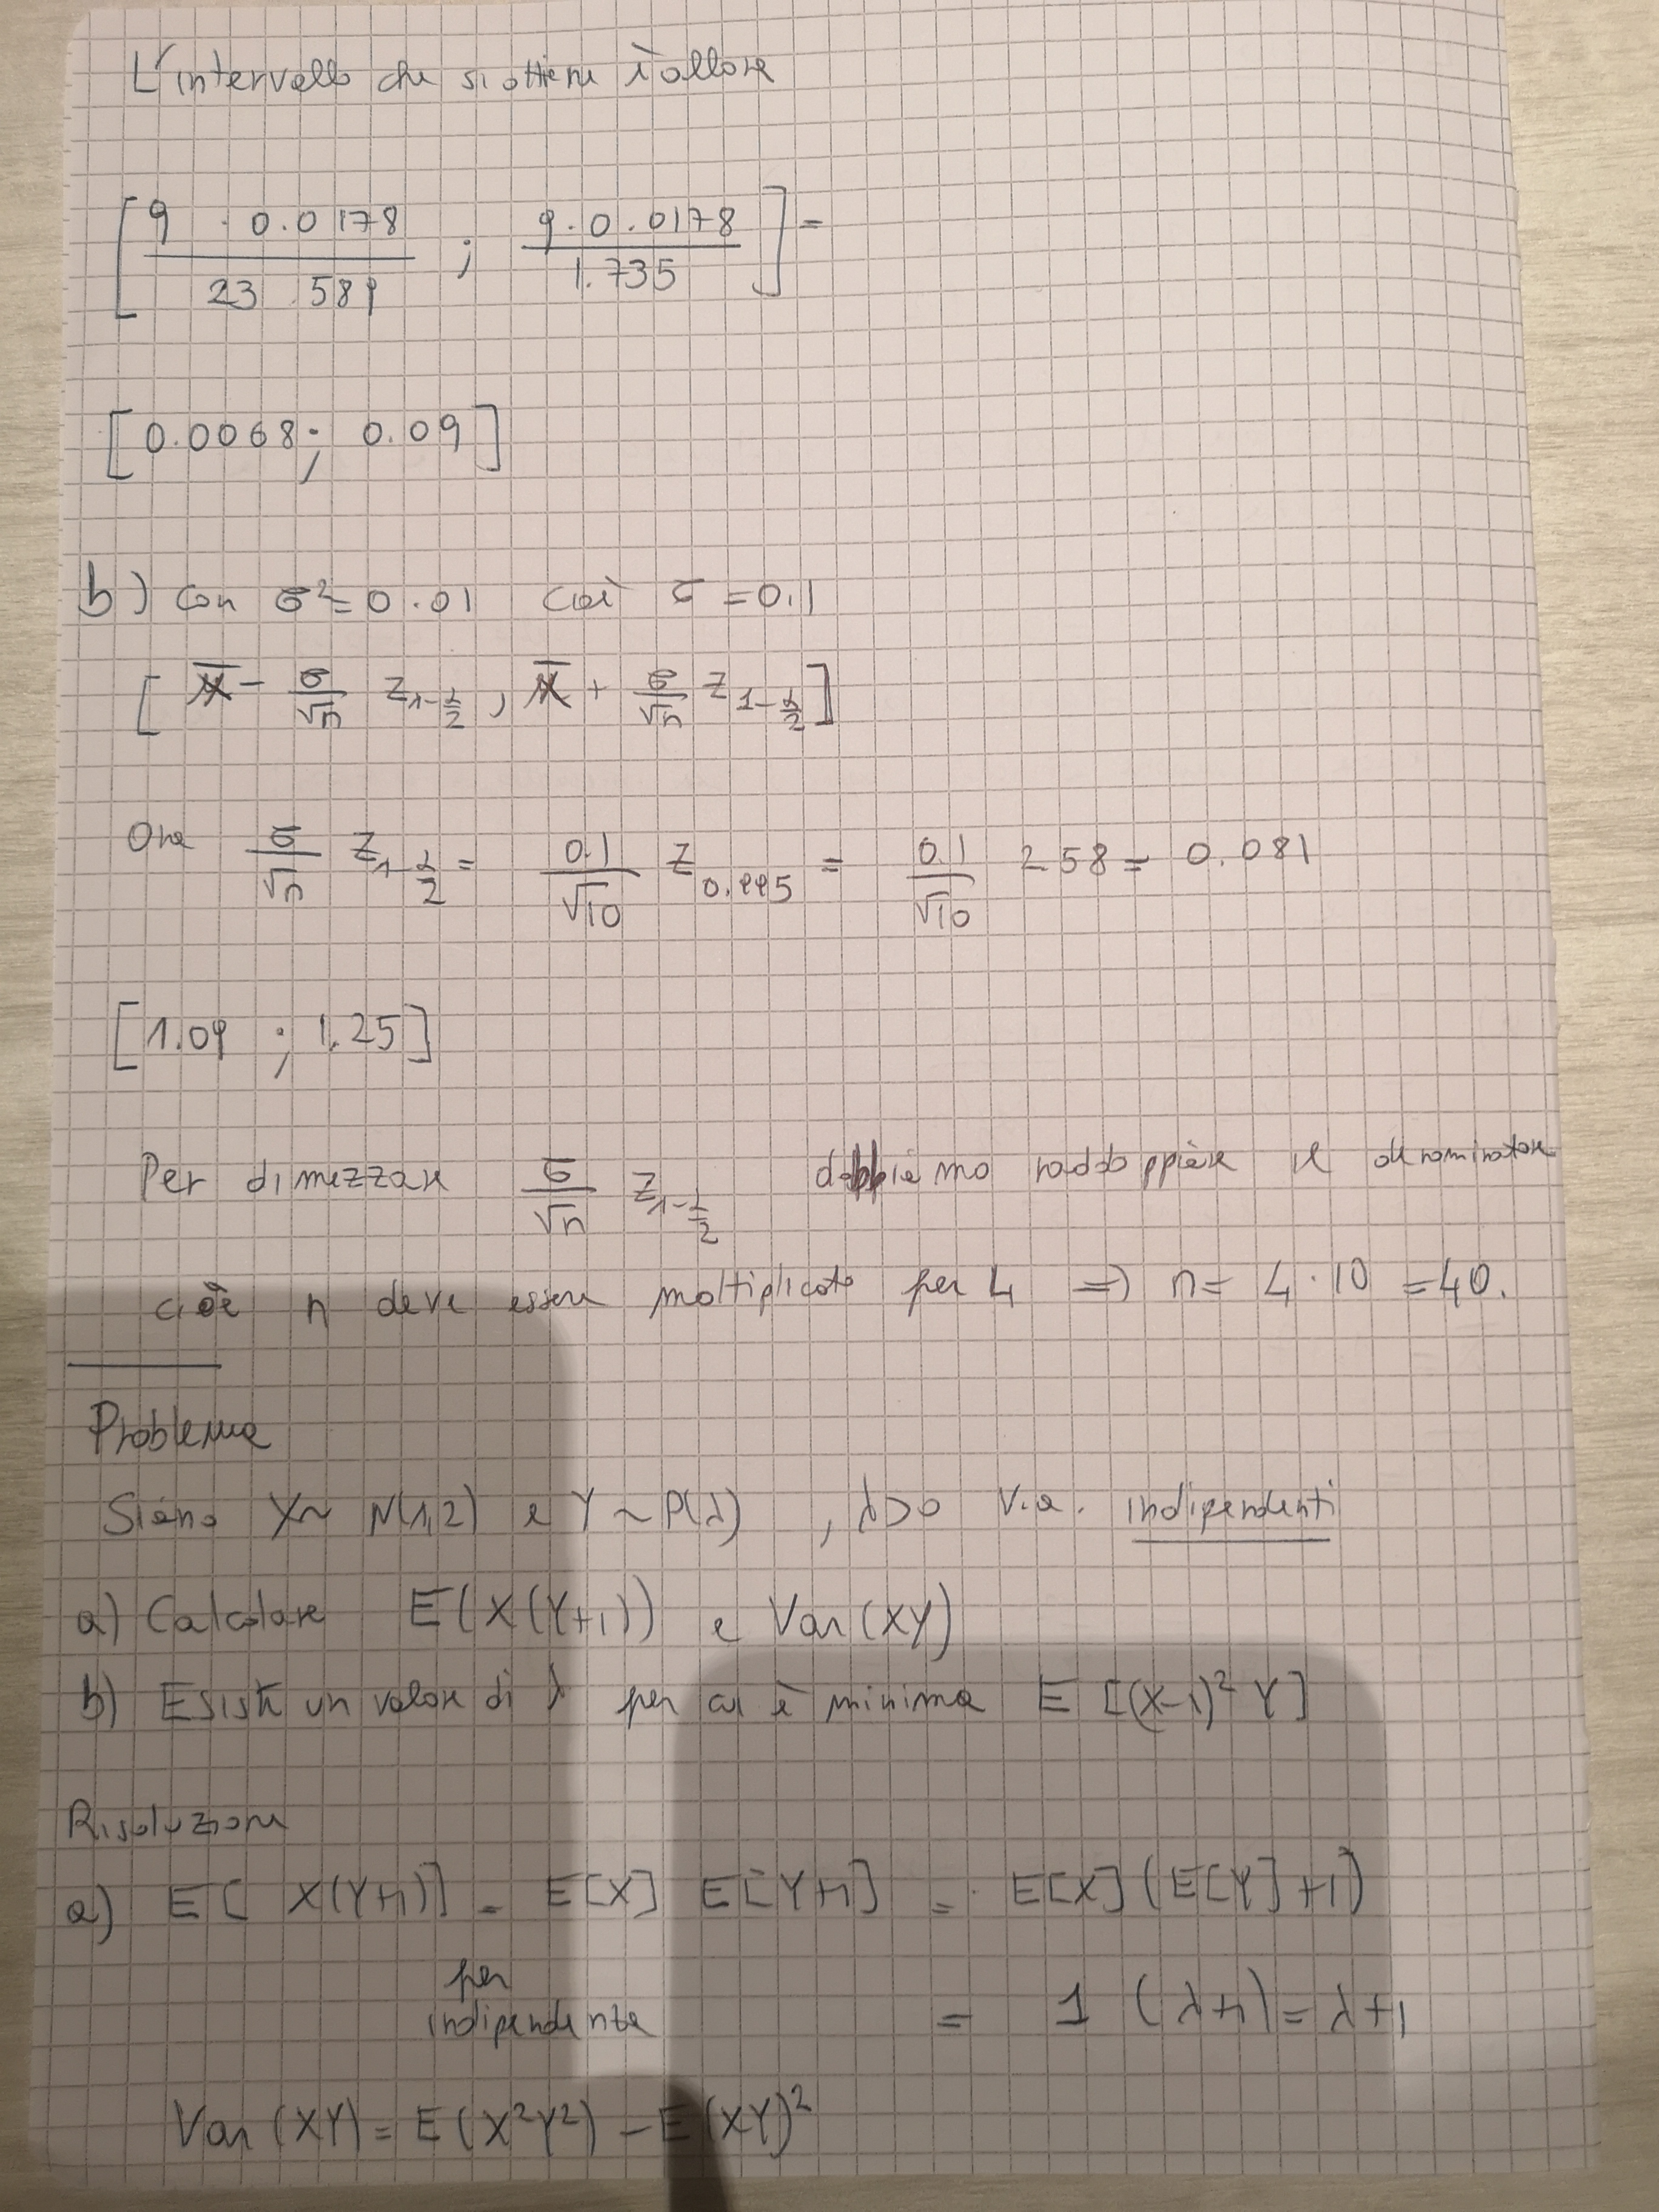 L'intervallo che si ottiene è allora
[ 9 · 0.0178 / 23 589 ; 9 · 0.0178 / 1.735 ] =
[0.0068 ; 0.09]
b) Con σ² = 0.01 cioè σ = 0.1
[ X̄ - σ/√n z_{1-α/2} , X̄ + σ/√n z_{1-α/2} ]
Ora σ/√n z_{1-α/2} = 0.1/√10 z_{0.995} = 0.1/√10 2 58 = 0.081
[1.09 ; 1.25]
Per dimezzare σ/√n z_{1-α/2} dobbiamo raddoppiare il denominatore
cioè n deve essere moltiplicato per 4 ⇒ n = 4 · 10 = 40.
Problema
Siano X ~ N(1,2) e Y ~ P(λ) , λ>0 v.a. indipendenti
a) Calcolare E(X(Y+1)) e Var(XY)
b) Esiste un valore di λ per cui è minima E[(X-1)² Y]
Risoluzione
a) E[X(Y+1)] = E[X] E[Y+1] = E[X](E[Y]+1)
per
indipendenza = 1 (λ+1) = λ+1
Var(XY) = E(X²Y²) - E(XY)²